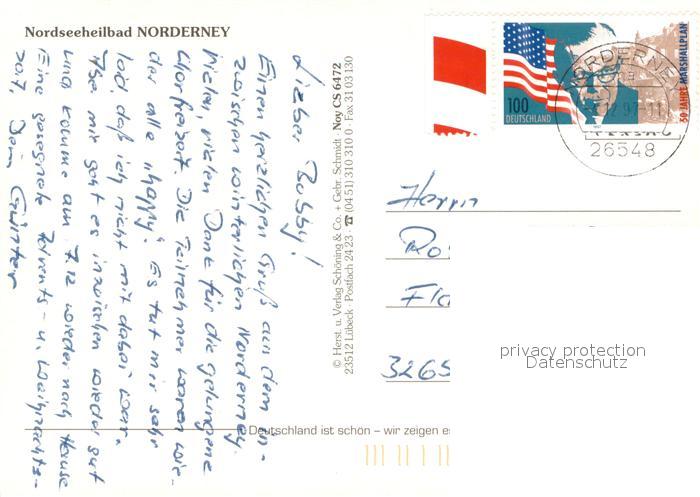 Nordseeheilbad NORDERNEY
Lieber Bobby!
Einen herzlichen Gruß aus dem in-
zwischen winterlichen Norderney.
Vielen, vielen Dank für die gelungene
Chorfreizeit. Die Teilnehmer waren wie-
der alle "happy". Es tut mir sehr
leid, daß ich nicht mit dabei war.
Aber mir geht es inzwischen wieder gut
und komme am 7.12 wieder nach Hause
Eine gesegnete Advents- u. Weihnachts-
zeit, Dein Günter
© Herst. u. Verlag Schöning & Co. + Gebr. Schmidt · Noy CS 6472
23512 Lübeck · Postfach 24 23 · ☎ (04 51) 310 310 0 · Fax 31 03 130
100
DEUTSCHLAND
50 JAHRE MARSHALLPLAN
1997
NORDERNEY
26548
Herrn
Ro
Fl
3265
privacy protection
Datenschutz
© Deutschland ist schön – wir zeigen es